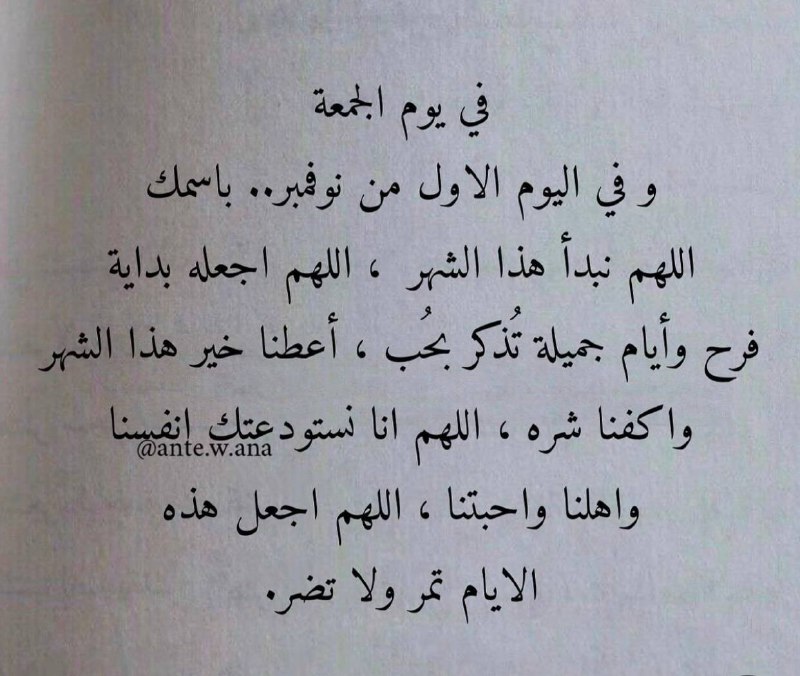 في يوم الجمعة
و في اليوم الاول من نوفمبر.. باسمك
اللهم نبدأ هذا الشهر ، اللهم اجعله بداية
فرح وأيام جميلة تُذكر بحُب ، أعطنا خير هذا الشهر
واكفنا شره ، اللهم انا نستودعتك انفسنا
@ante.w.ana
واهلنا واحبتنا ، اللهم اجعل هذه
الايام تمر ولا تضر.